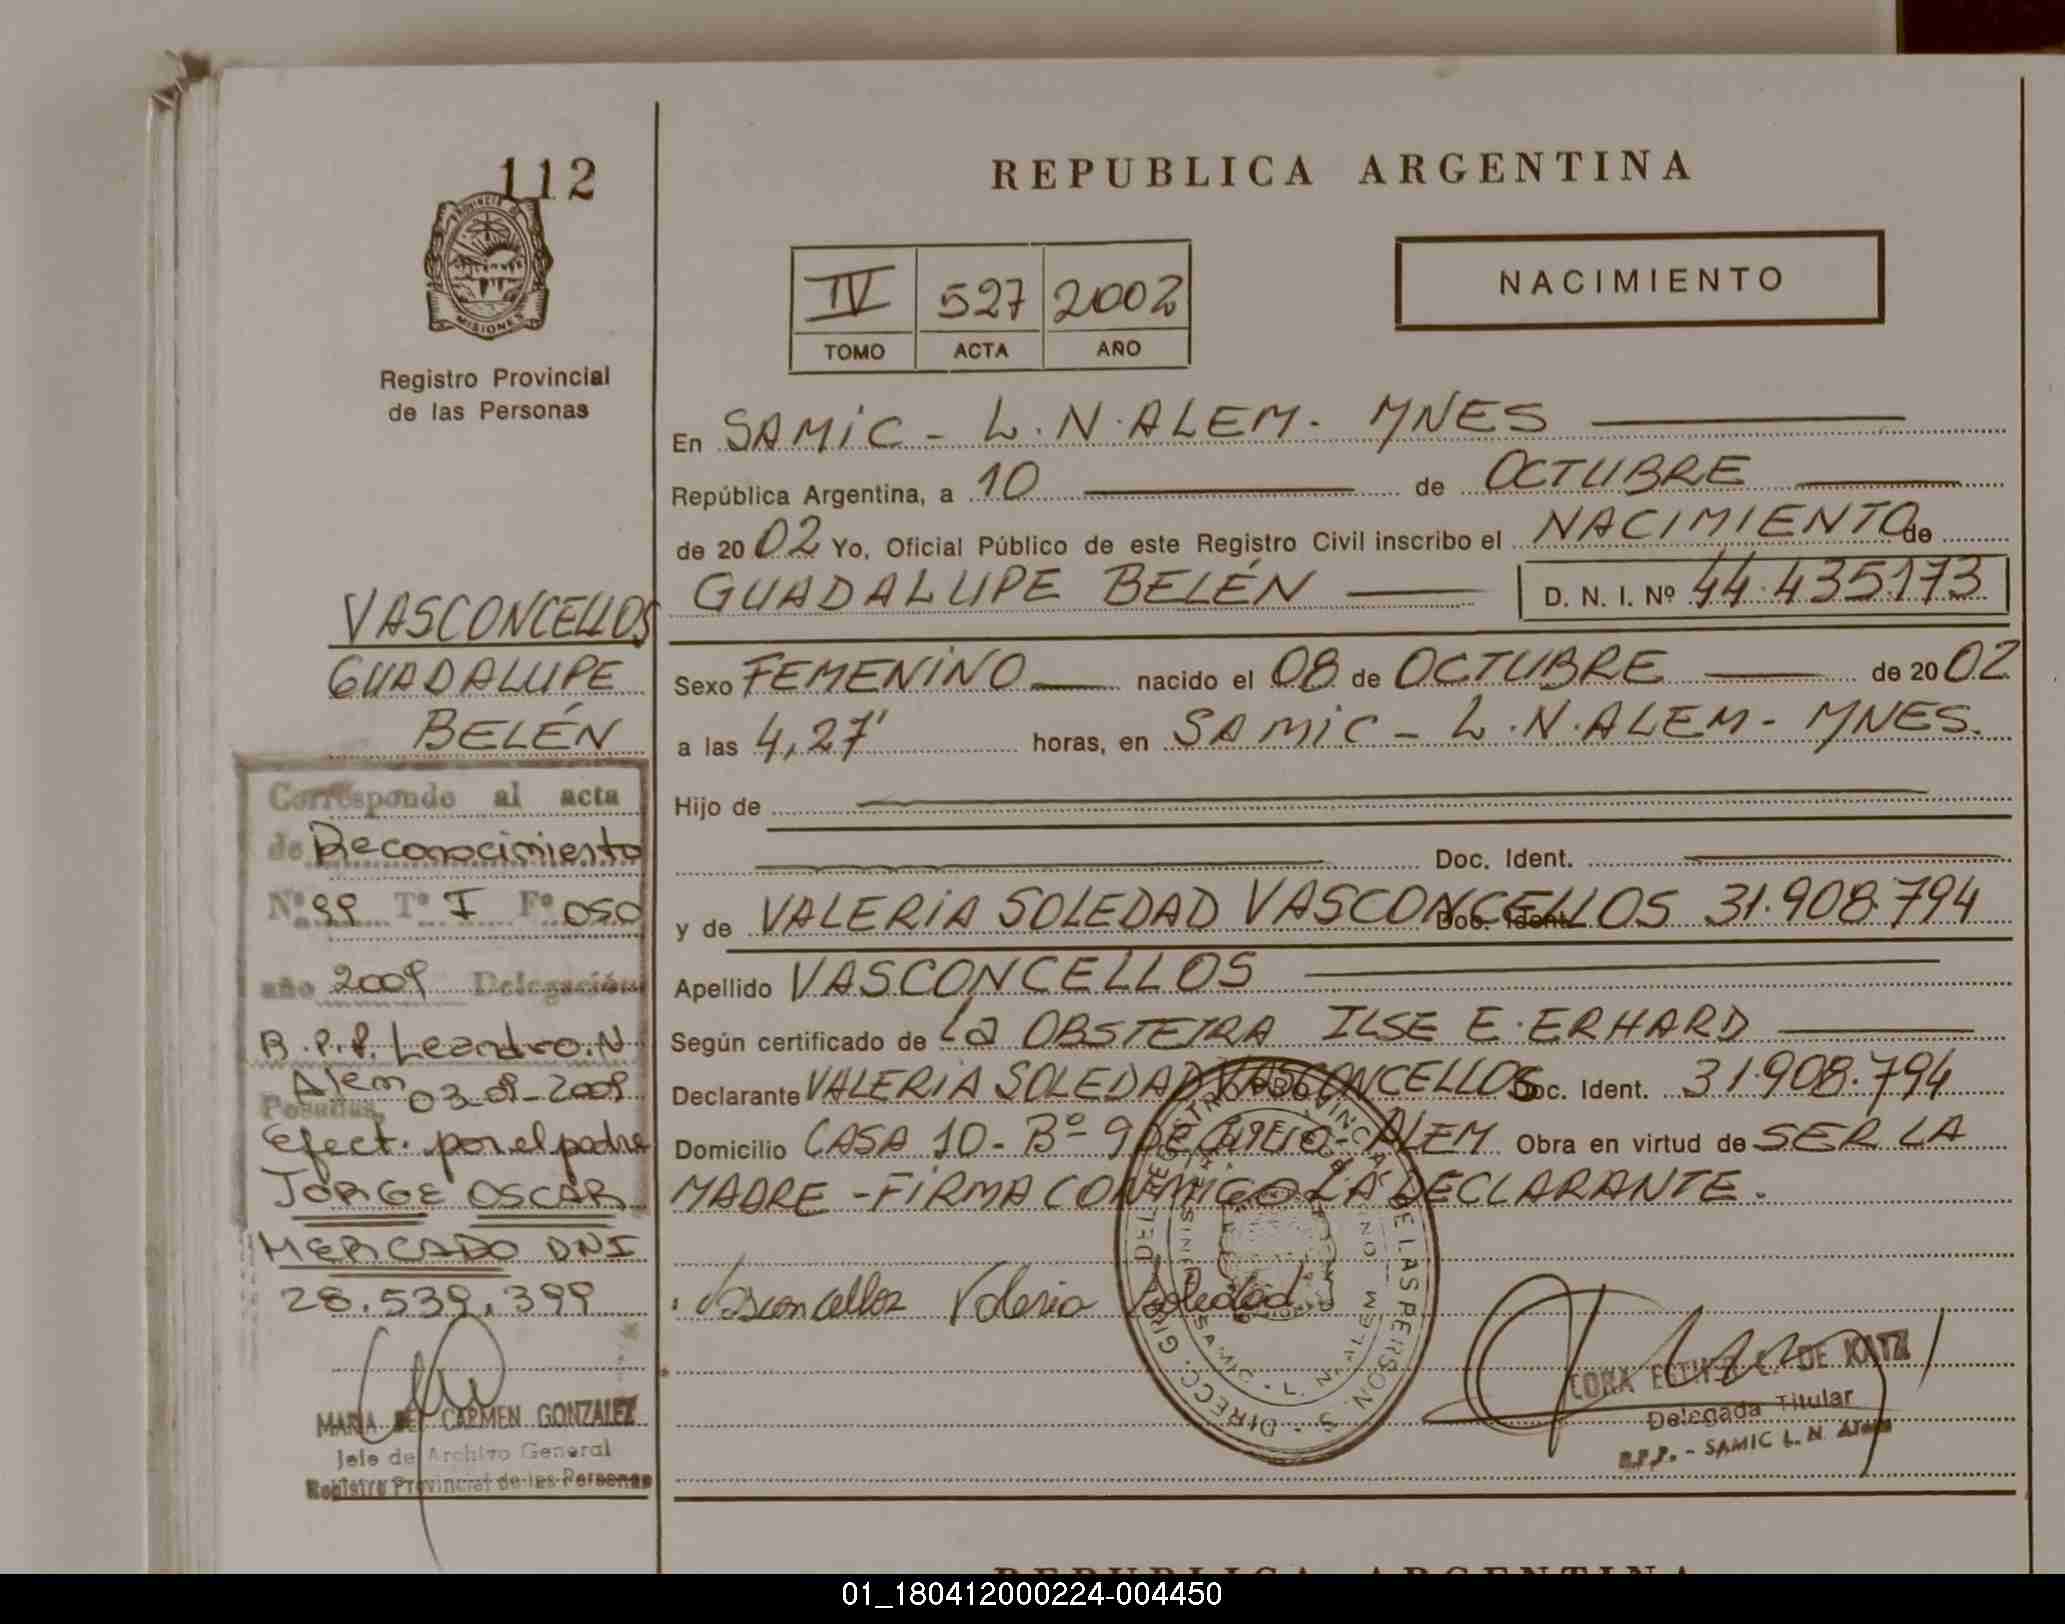 112
PROVINCIA DE
MISIONES
Registro Provincial
de las Personas
VASCONCELLOS
GUADALUPE
BELÉN
Corresponde al acta
de Reconocimiento
Nº 99 Tº I Fº 050
año 2009 Delegación
R.P.P. Leandro.N
Alem
Posadas, 03-09-2009
Efect. por el padre
JORGE OSCAR
MERCADO DNI
28.539.399
MARIA DEL CARMEN GONZALEZ
Jefe de Archivo General
Registro Provincial de las Personas
REPUBLICA ARGENTINA
IV 527 2002
TOMO ACTA AÑO
NACIMIENTO
En SAMIC - L.N.ALEM - MNES
República Argentina, a 10 de OCTUBRE
de 2002 Yo, Oficial Público de este Registro Civil inscribo el NACIMIENTO de
GUADALUPE BELÉN D. N. I. Nº 44.435.173
Sexo FEMENINO nacido el 08 de OCTUBRE de 2002
a las 4,27' horas, en SAMIC - L.N.ALEM - MNES.
Hijo de
Doc. Ident.
y de VALERIA SOLEDAD VASCONCELLOS Doc. Ident. 31.908.794
Apellido VASCONCELLOS
Según certificado de La OBSTETRA ILSE E. ERHARD
Declarante VALERIA SOLEDAD VASCONCELLOS Doc. Ident. 31.908.794
Domicilio CASA 10 - Bº 9 DE JULIO ALEM Obra en virtud de SER LA
MADRE - FIRMA CONMIGO LA DECLARANTE.
Vasconcellos Valeria Soledad
DIRECC. GRAL. DEL REGISTRO PROVINCIAL DE LAS PERSONAS
SAMIC - L. N. ALEM
CORA ESTHER C. DE KATZ
Delegada Titular
R.P.P. - SAMIC L. N. Alem
REPUBLICA ARGENTINA
01_180412000224-004450